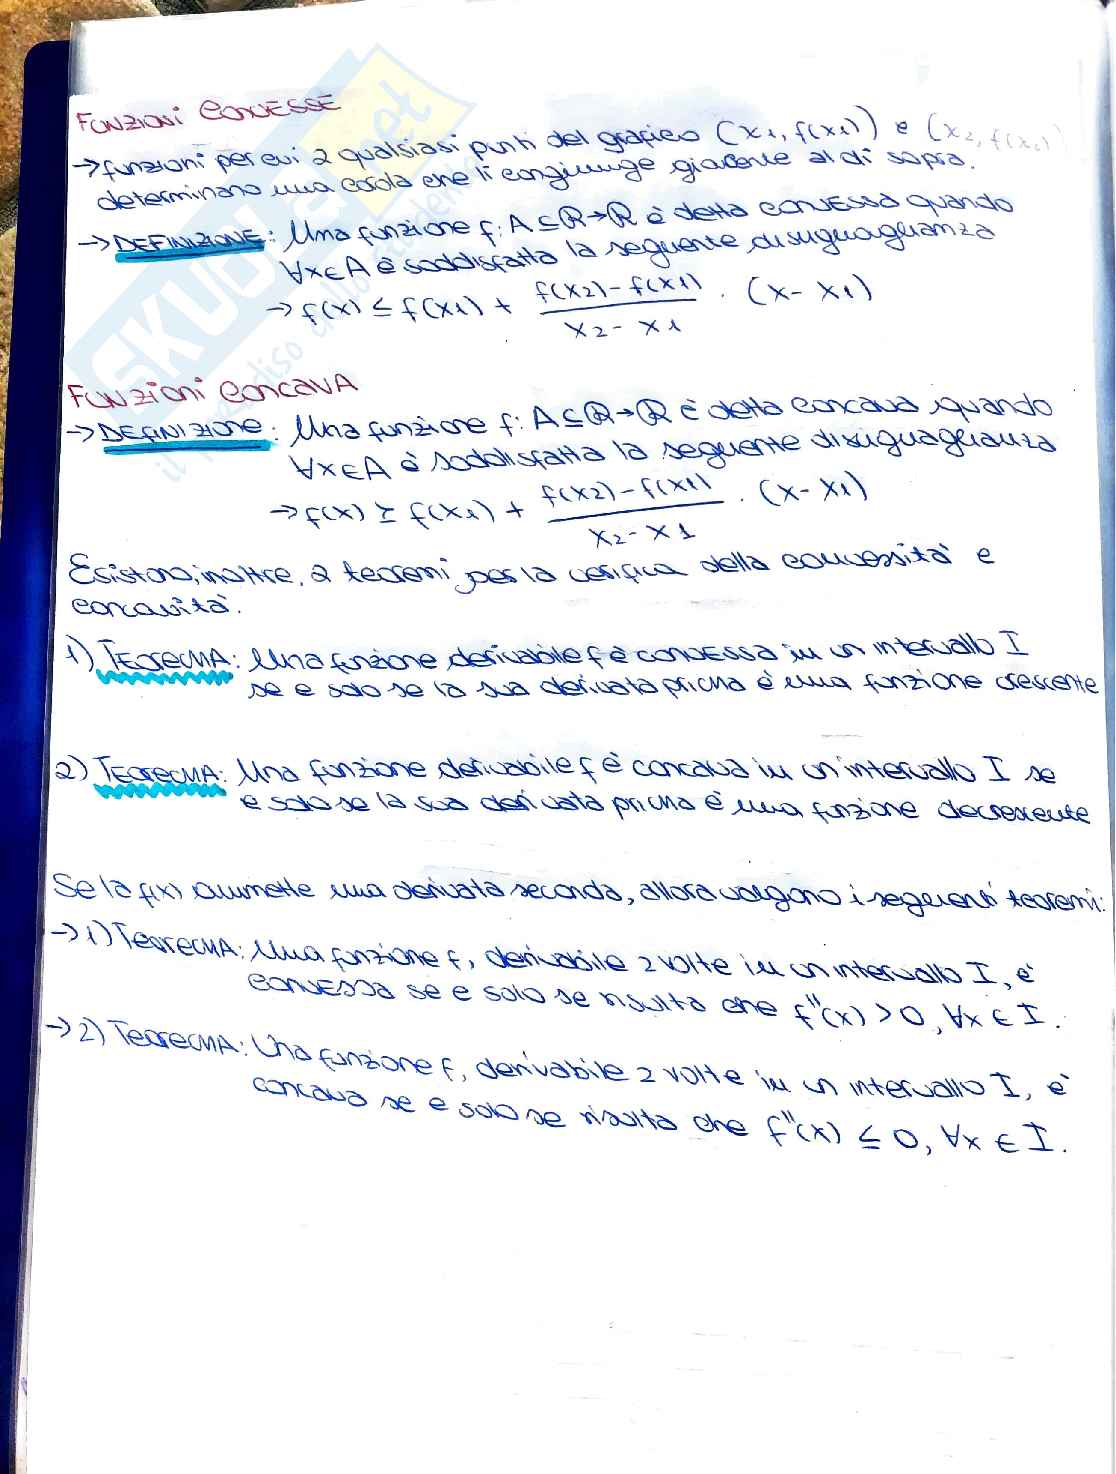 FUNZIONI CONVESSE
→ funzioni per cui 2 qualsiasi punti del grafico (x1, f(x1)) e (x2, f(x2)
determinano una corda che li congiunge giacente al di sopra.
→ DEFINIZIONE: Una funzione f: A ⊆ ℝ → ℝ è detta convessa quando
∀x∈A è soddisfatta la seguente disuguaglianza
→ f(x) ≤ f(x1) + (f(x2) - f(x1))/(x2 - x1) · (x - x1)
FUNZIONI CONCAVA
→ DEFINIZIONE: Una funzione f: A ⊆ ℝ → ℝ è detta concava quando
∀x∈A è soddisfatta la seguente disuguaglianza
→ f(x) ≥ f(x1) + (f(x2) - f(x1))/(x2 - x1) · (x - x1)
Esistono, inoltre, 2 teoremi per la verifica della convessità e
concavità.
1) TEOREMA: Una funzione derivabile f è convessa in un intervallo I
se e solo se la sua derivata prima è una funzione crescente
2) TEOREMA: Una funzione derivabile f è concava in un intervallo I se
e solo se la sua derivata prima è una funzione decrescente
Se la f(x) ammette una derivata seconda, allora valgono i seguenti teoremi:
→ 1) TEOREMA: Una funzione f, derivabile 2 volte in un intervallo I, è
convessa se e solo se risulta che f''(x) > 0, ∀x ∈ I.
→ 2) TEOREMA: Una funzione f, derivabile 2 volte in un intervallo I, è
concava se e solo se risulta che f''(x) ≤ 0, ∀x ∈ I.
SKUOLA.net
il paradiso dello studente